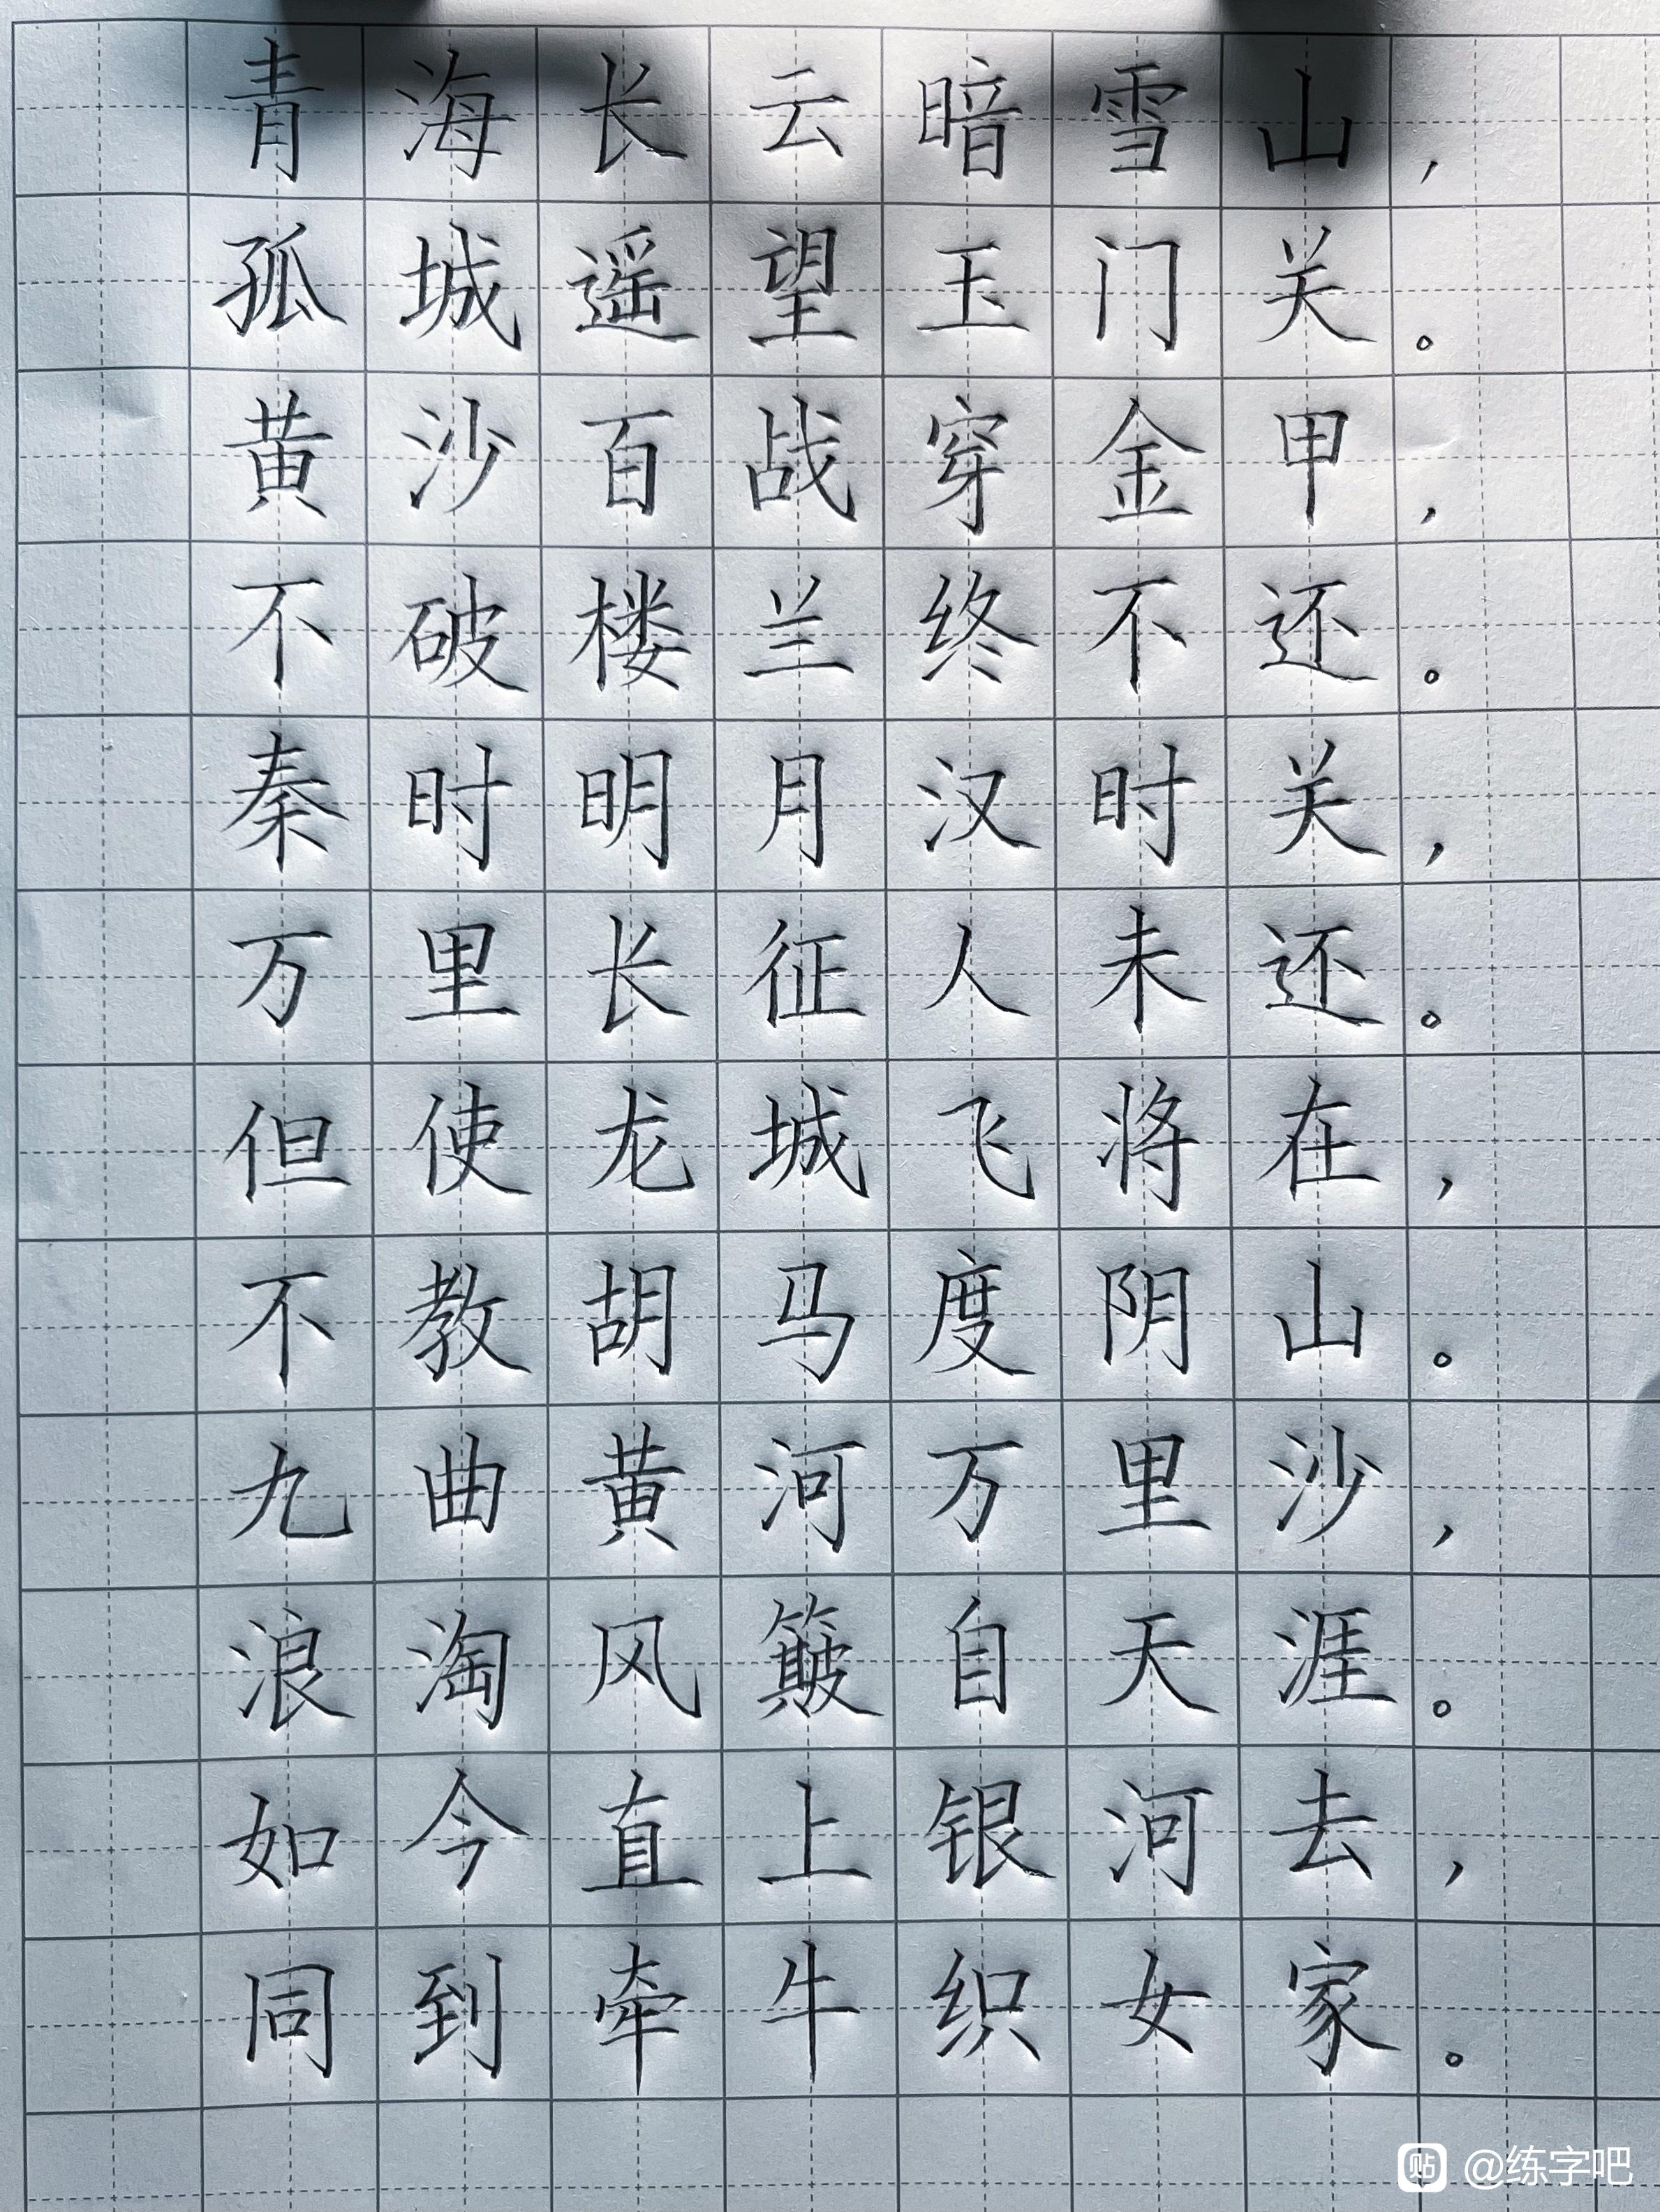 青海长云暗雪山，
孤城遥望玉门关。
黄沙百战穿金甲，
不破楼兰终不还。
秦时明月汉时关，
万里长征人未还。
但使龙城飞将在，
不教胡马度阴山。
九曲黄河万里沙，
浪淘风簸自天涯。
如今直上银河去，
同到牵牛织女家。
贴 @练字吧